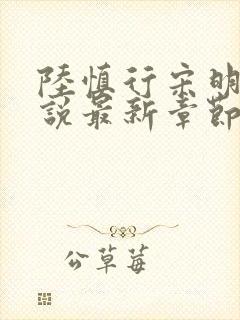 陸慎行宋明
説最新章節
公草莓